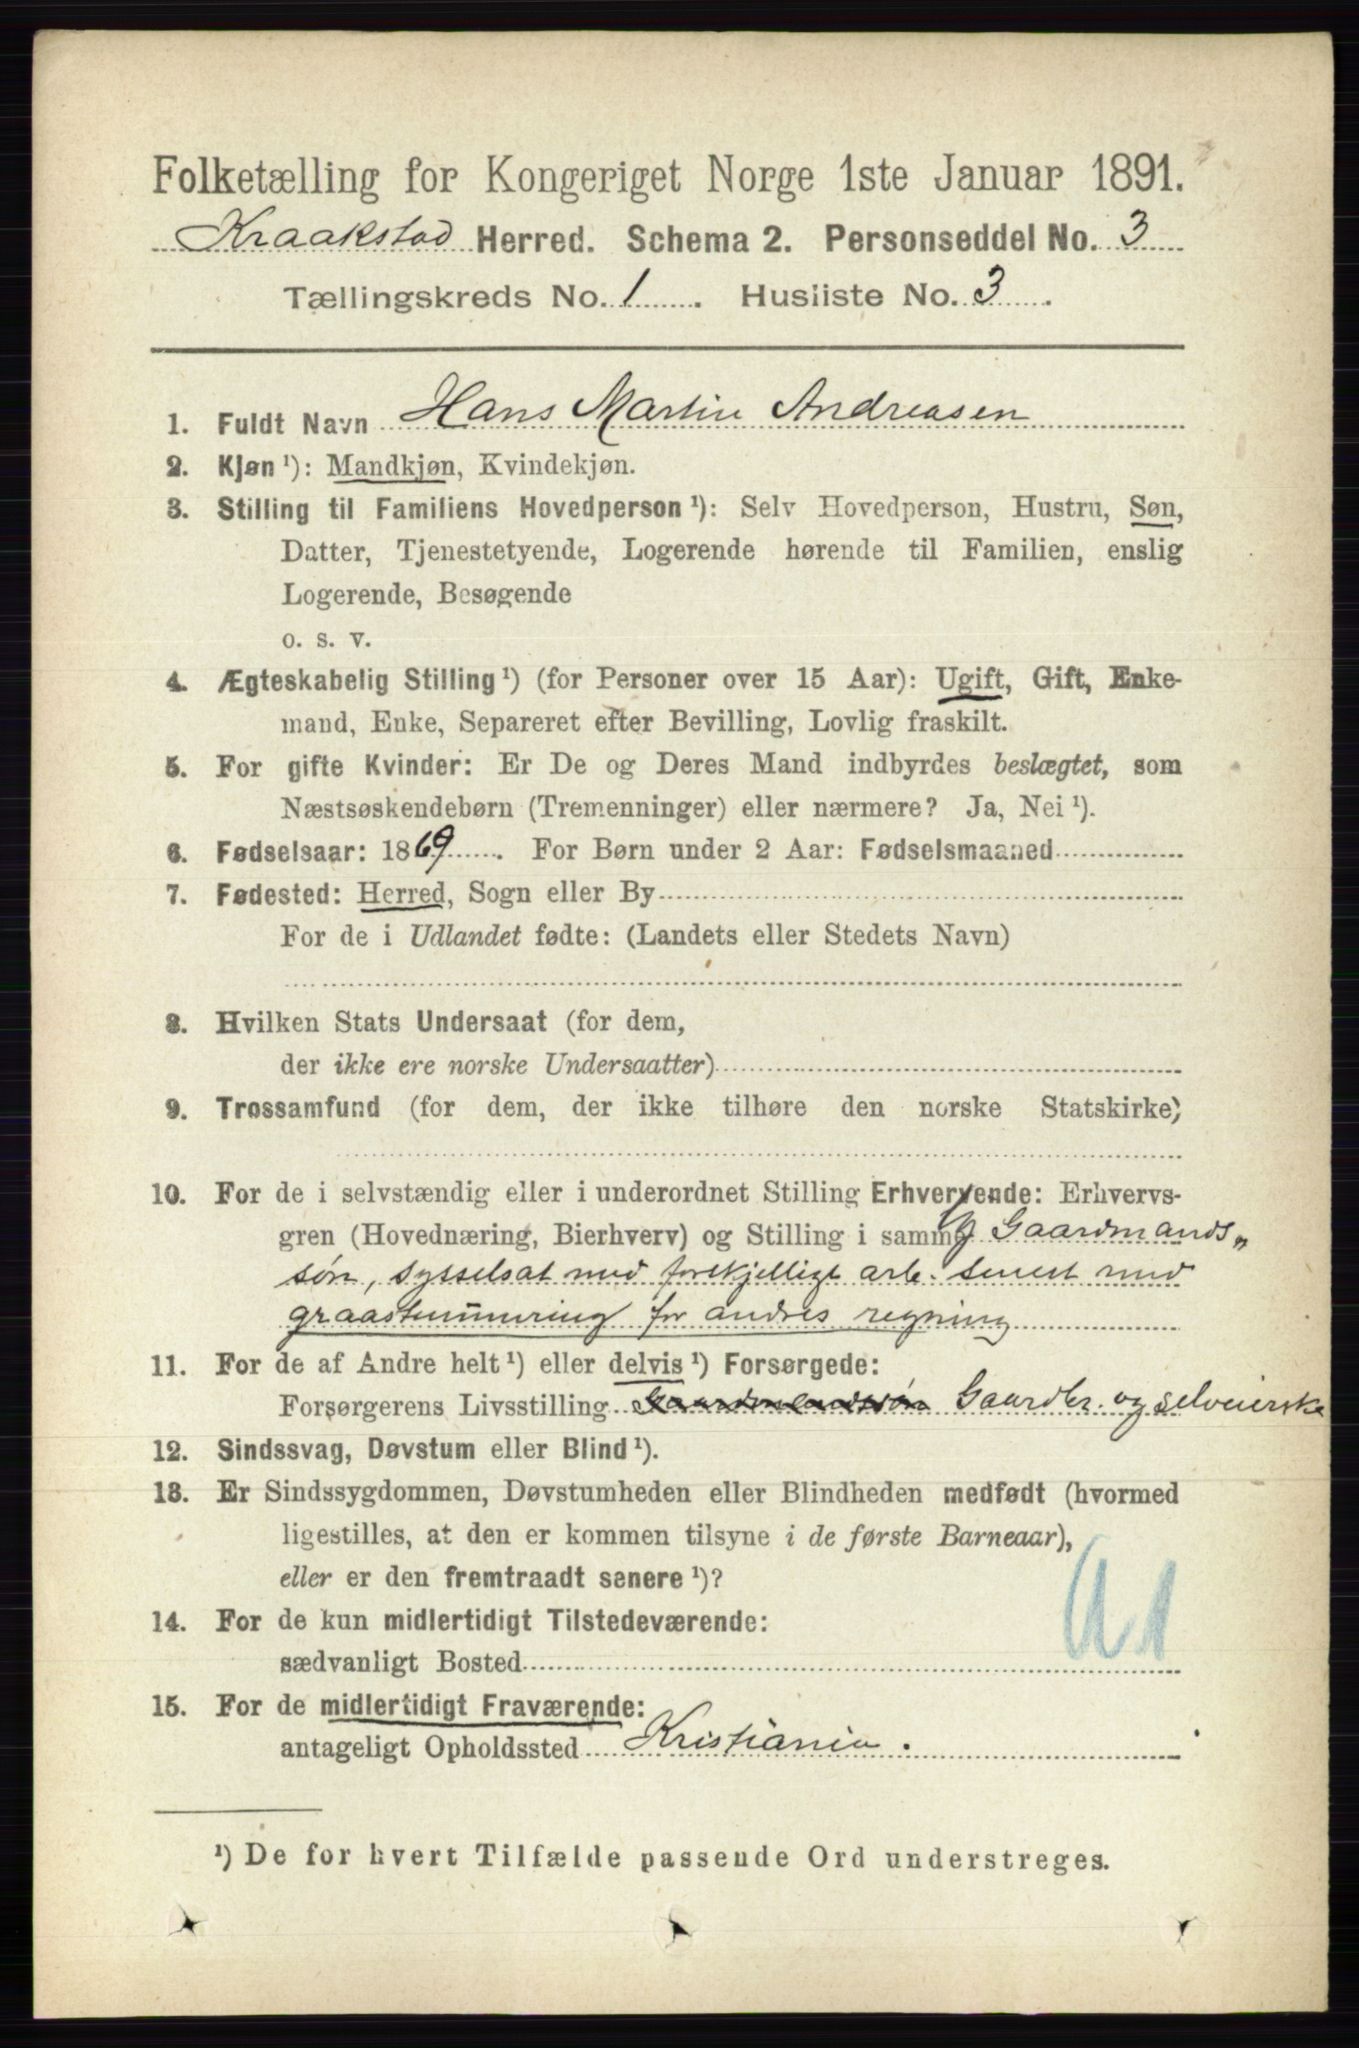 Folketælling for Kongeriget Norge 1ste Januar 1891.
Kraakstad Herred. Schema 2. Personseddel No. 3
Tællingskreds No. 1 . Husliste No. 3 .
1. Fuldt Navn Hans Martin Andreasen
2. Kjøn ¹): Mandkjøn, Kvindekjøn.
3. Stilling til Familiens Hovedperson ¹): Selv Hovedperson, Hustru, Søn,
Datter, Tjenestetyende, Logerende hørende til Familien, enslig
Logerende, Besøgende
o. s. v.
4. Ægteskabelig Stilling ¹) (for Personer over 15 Aar): Ugift, Gift, Enke-
mand, Enke, Separeret efter Bevilling, Lovlig fraskilt.
5. For gifte Kvinder: Er De og Deres Mand indbyrdes beslægtet, som
Næstsøskendebørn (Tremenninger) eller nærmere? Ja, Nei ¹).
6. Fødselsaar: 1869 . For Børn under 2 Aar: Fødselsmaaned
7. Fødested: Herred, Sogn eller By
For de i Udlandet fødte: (Landets eller Stedets Navn)
8. Hvilken Stats Undersaat (for dem,
der ikke ere norske Undersaatter)
9. Trossamfund (for dem, der ikke tilhøre den norske Statskirke)
10. For de i selvstændig eller i underordnet Stilling Erhvervende: Erhvervs-
gren (Hovednæring, Bierhverv) og Stilling i samme Gaardmands„
søn, sysselsat med forskjelligt arb. senest med
graastensmuring for andres regning
11. For de af Andre helt ¹) eller delvis ¹) Forsørgede:
Forsørgerens Livsstilling Gaardmandssøn Gaardbr. og selveierske
12. Sindssvag, Døvstum eller Blind ¹).
13. Er Sindssygdommen, Døvstumheden eller Blindheden medfødt (hvormed
ligestilles, at den er kommen tilsyne i de første Barneaar),
eller er den fremtraadt senere ¹)?
14. For de kun midlertidigt Tilstedeværende:
sædvanligt Bosted
15. For de midlertidigt Fraværende:
antageligt Opholdssted Kristiania .
¹) De for hvert Tilfælde passende Ord understreges.